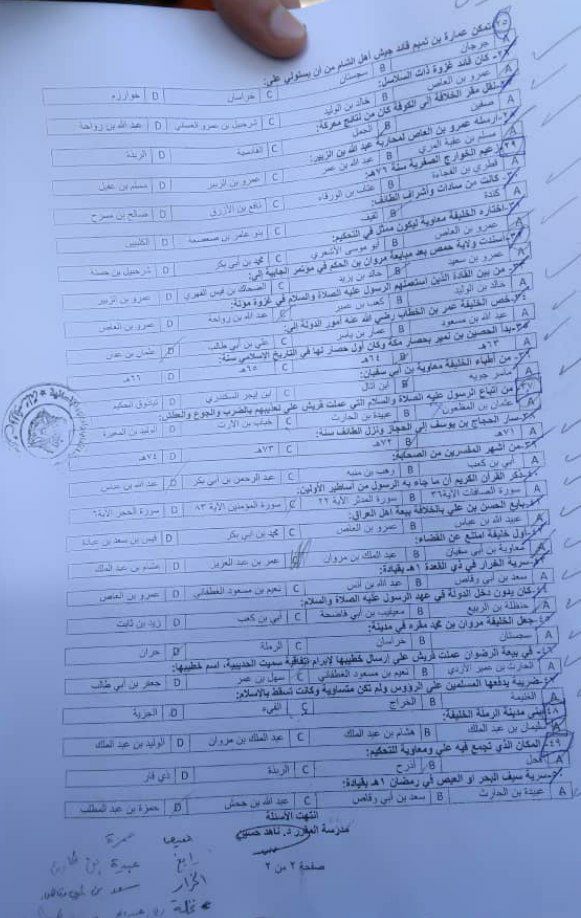 ٢٥- تمكن عمارة بن تميم قائد جيش أهل الشام من ان يستولي على:
A جرجان B سجستان C خراسان D خوارزم
كان قائد غزوة ذات السلاسل:
A عمرو بن العاص B خالد بن الوليد C شرحبيل بن عمرو الغساني D عبد الله بن رواحة
نقل مقر الخلافة الى الكوفة كان من نتائج معركة:
A صفين B الجمل C القادسية D الربذة
ارسله عمرو بن العاص لمحاربة عبد الله بن الزبير:
A مسلم بن عقبة المري B عبد الله بن عمر C عمرو بن الزبير D مسلم بن عقيل
٢٩- زعيم الخوارج الصفرية سنة ٧٦هـ:
A قطري بن الفجاءة B عتاب بن الورقاء C نافع بن الأزرق D صالح بن مسرح
كانت من سادات وأشراف الطائف:
A كندة B ثقيف C بنو عامر بن صعصعة D الكلبيين
اختاره الخليفة معاوية ليكون ممثل في التحكيم:
A عمرو بن العاص B أبو موسى الأشعري C محمد بن أبي بكر D شرحبيل بن حسنة
اسندت ولاية حمص بعد مبايعة مروان بن الحكم في مؤتمر الجابية إلى:
A عمرو بن سعيد B خالد بن يزيد C الضحاك بن قيس الفهري D عمرو بن الزبير
من بين القادة الذين استعملهم الرسول عليه الصلاة والسلام في غزوة مؤتة:
A خالد بن الوليد B كعب بن عمير C عبد الله بن رواحة D عمرو بن العاص
٣٤- خص الخليفة عمر بن الخطاب رضي الله عنه أمور الدولة إلى:
A عبد الله بن مسعود B عمار بن ياسر C علي بن أبي طالب D عثمان بن عفان
٣٥- بدأ الحصين بن نمير بحصار مكة وكان أول حصار لها في التاريخ الاسلامي سنة:
A ٦٣هـ B ٦٤هـ C ٦٥هـ D ٦٦هـ
من أطباء الخليفة معاوية بن أبي سفيان:
A ماسر جويه B ابن أثال C ابن ابجر السكندري D تياذوق الحكيم
٣٧- من اتباع الرسول عليه الصلاة والسلام التي عملت قريش على تعذيبهم بالضرب والجوع والعطش:
A عثمان بن المظعون B عبيدة بن الحارث C خباب بن الأرت D الوليد بن المغيرة
سار الحجاج بن يوسف الى الحجاز ونزل الطائف سنة:
A ٧١هـ B ٧٢هـ C ٧٣هـ D ٧٤هـ
٣٩- من أشهر المفسرين من الصحابة:
A أبي بن كعب B وهب بن منبه C عبد الرحمن بن أبي بكر D عبد الله بن عباس
ذكر القران الكريم أن ما جاء به الرسول من أساطير الأولين:
A سورة الصافات الآية٣٦ B سورة المدثر الآية ٢٢ C سورة المؤمنين الآية ٨٣ D سورة الحجر الآية٦
بايع الحسن بن علي بالخلافة بيعة اهل العراق:
A عبيد الله بن عباس B عمرو بن العاص C محمد بن أبي بكر D قيس بن سعد بن عبادة
أول خليفة امتنع عن القضاء:
A معاوية بن أبي سفيان B عبد الملك بن مروان C عمر بن عبد العزيز D هشام بن عبد الملك
سرية الخرار في ذي القعدة ١هـ بقيادة:
A سعد بن أبي وقاص B عبد الله بن أنس C نعيم بن مسعود الغطفاني D عمرو بن العاص
كان يدون دخل الدولة في عهد الرسول عليه الصلاة والسلام:
A حنظلة بن الربيع B معيقيب بن أبي فاطمة C أبي بن كعب D زيد بن ثابت
٤٥- جعل الخليفة مروان بن محمد مقره في مدينة:
A سجستان B خراسان C الرملة D حران
٤٦- في بيعة الرضوان عملت قريش على إرسال خطيبها لإبرام إتفاقية سميت الحديبية، اسم خطيبها:
A الحارث بن عمير الأزدي B نعيم بن مسعود الغطفاني C سهل بن عمر D جعفر بن أبي طالب
ضريبة يدفعها المسلمين على الرؤوس ولم تكن متساوية وكانت تسقط بالاسلام:
A الغنيمة B الخراج C الفيء D الجزية
٤٨- بنى مدينة الرملة الخليفة:
A سليمان بن عبد الملك B هشام بن عبد الملك C عبد الملك بن مروان D الوليد بن عبد الملك
٤٩- المكان الذي تجمع فيه علي ومعاوية للتحكيم:
A فحل B أذرح C الربذة D ذي قار
سرية سيف البحر او العيص في رمضان ١هـ بقيادة:
A عبيدة بن الحارث B سعد بن أبي وقاص C عبد الله بن جحش D حمزة بن عبد المطلب
انتهت الأسئلة
مدرسة المقرر د. ناهد حسين
صفحة ٢ من ٢
حمزة
رابغ عبيدة بن
الخرار سعد بن
نخلة